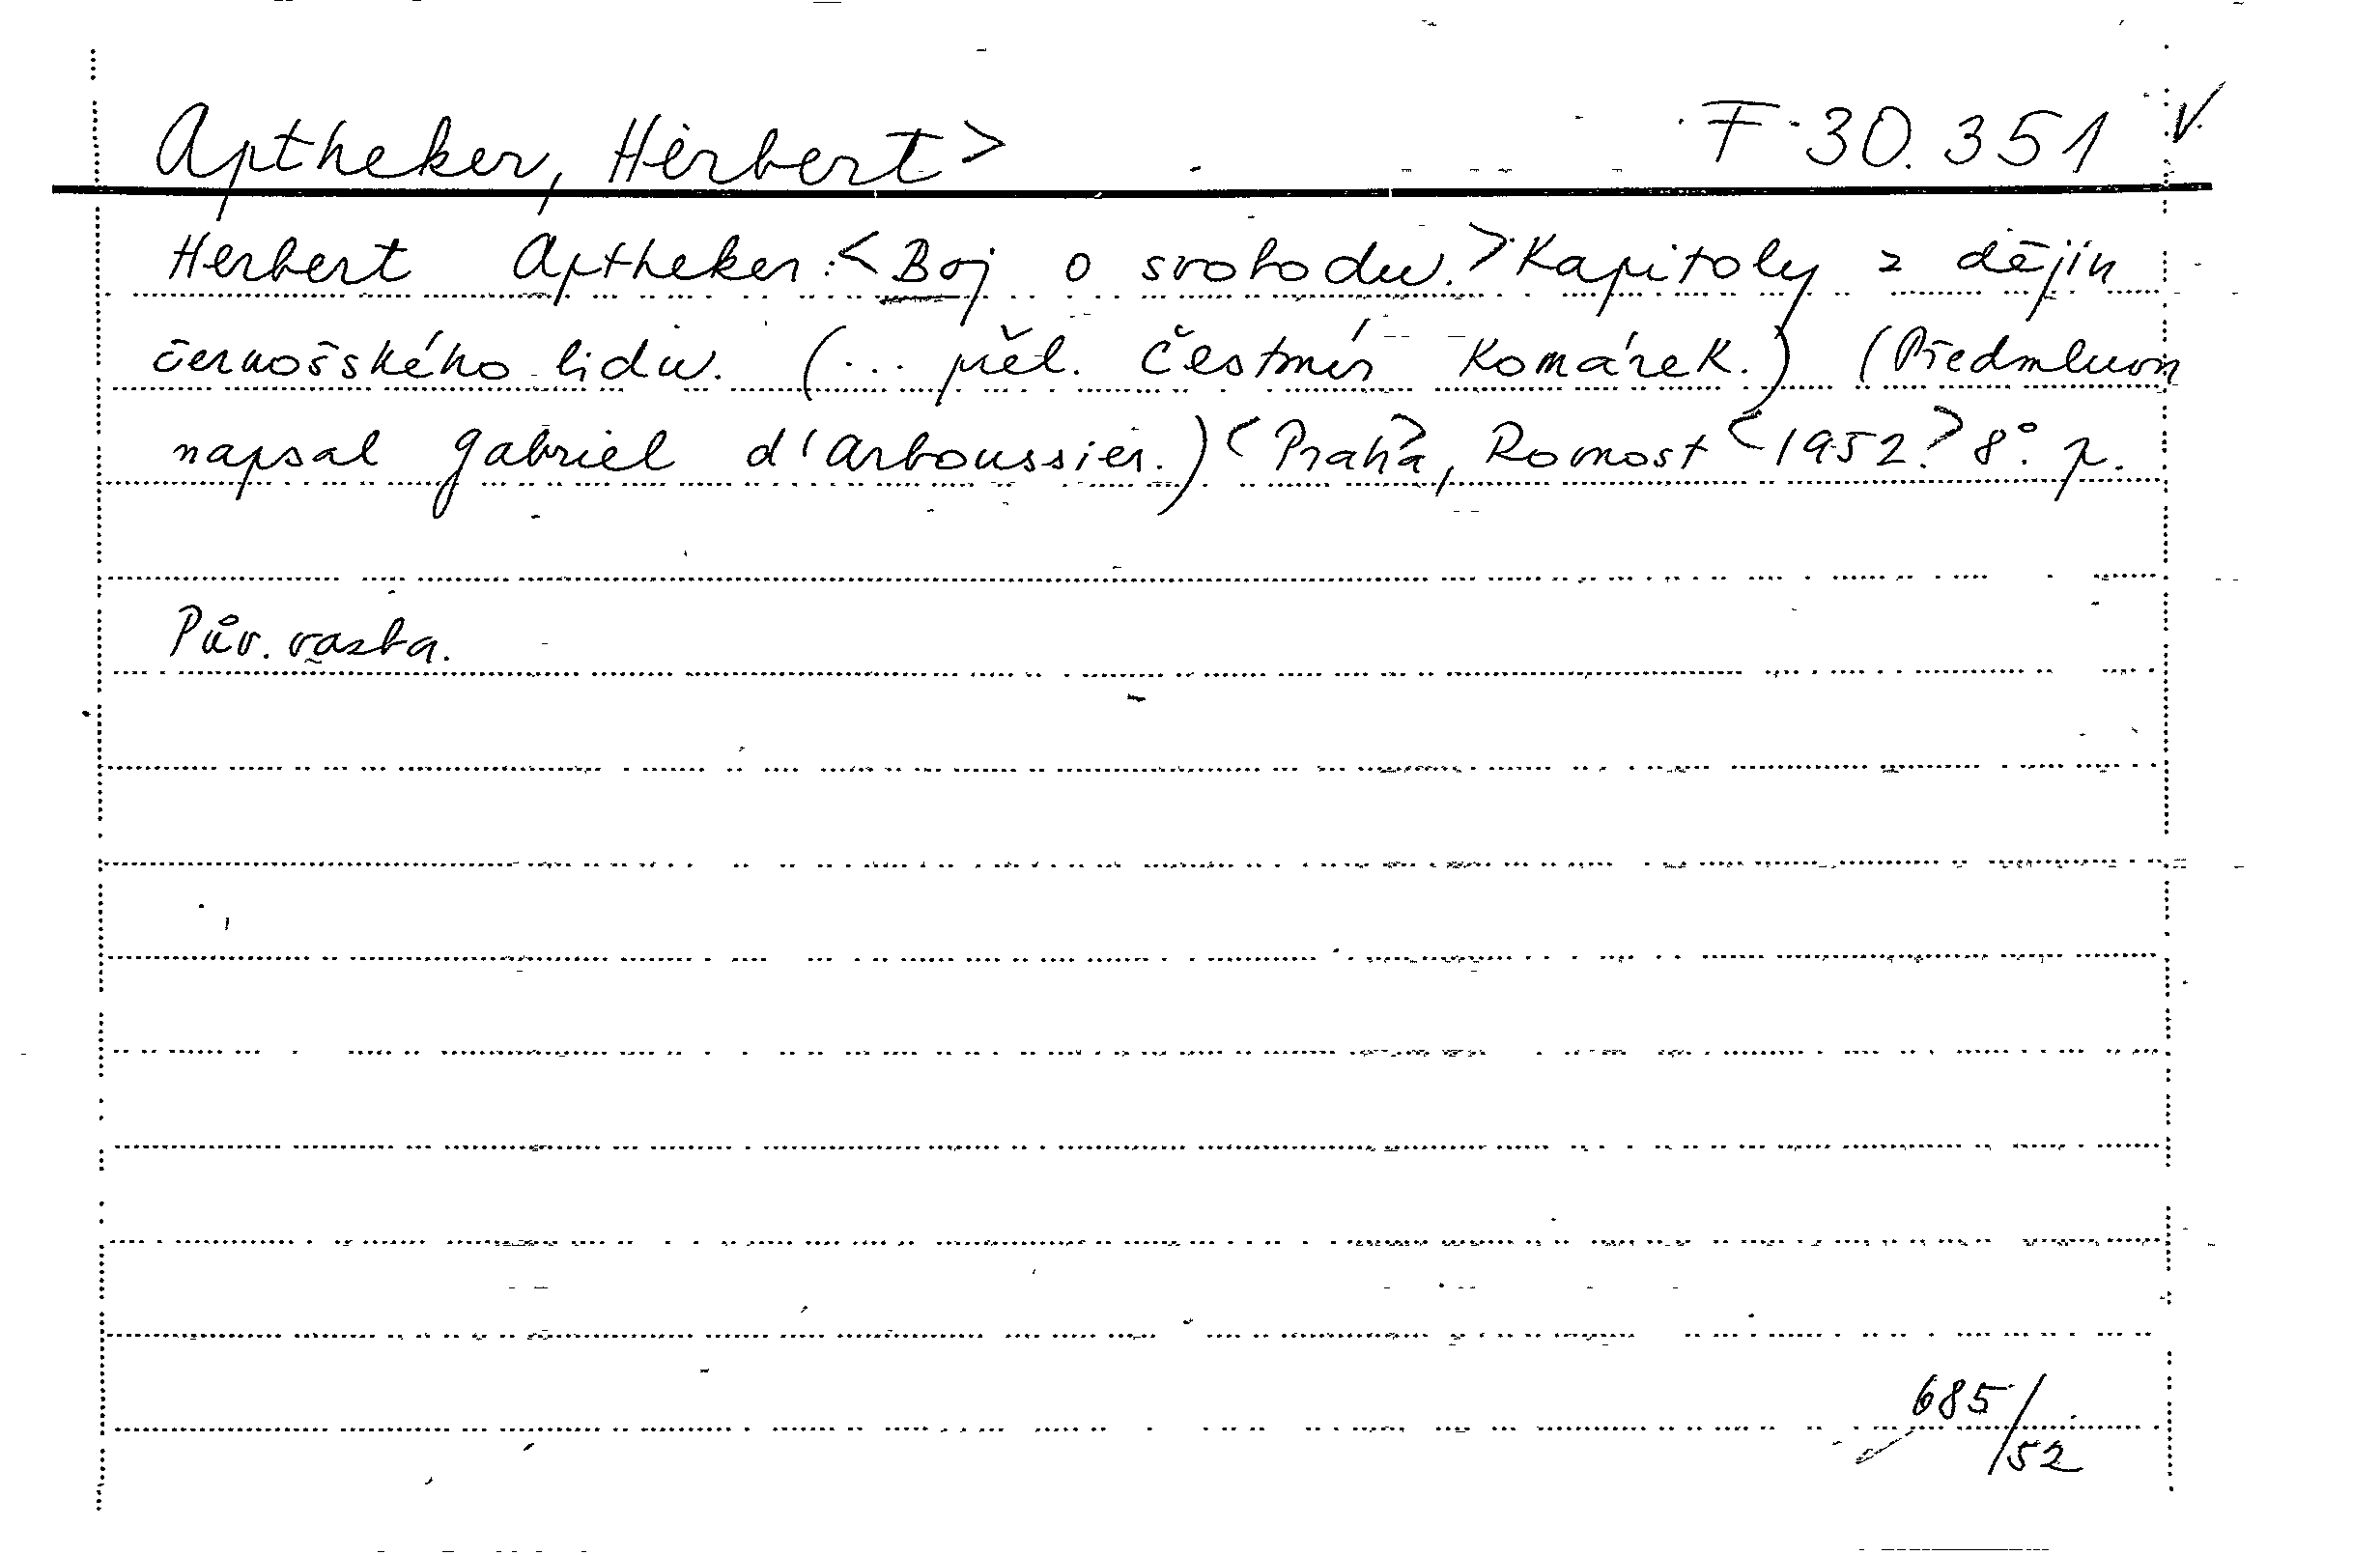 Aptheker, Herbert> F 30.351 V.
Herbert Aptheker: <Boj o svobodu.> Kapitoly z dějin
černošského lidu. (... přel. Čestmír Komárek.) (Předmluvu
napsal Gabriel d'Arboussier.) <Praha>, Rovnost <1952> 8°. p.
Pův. vazba.
685/52